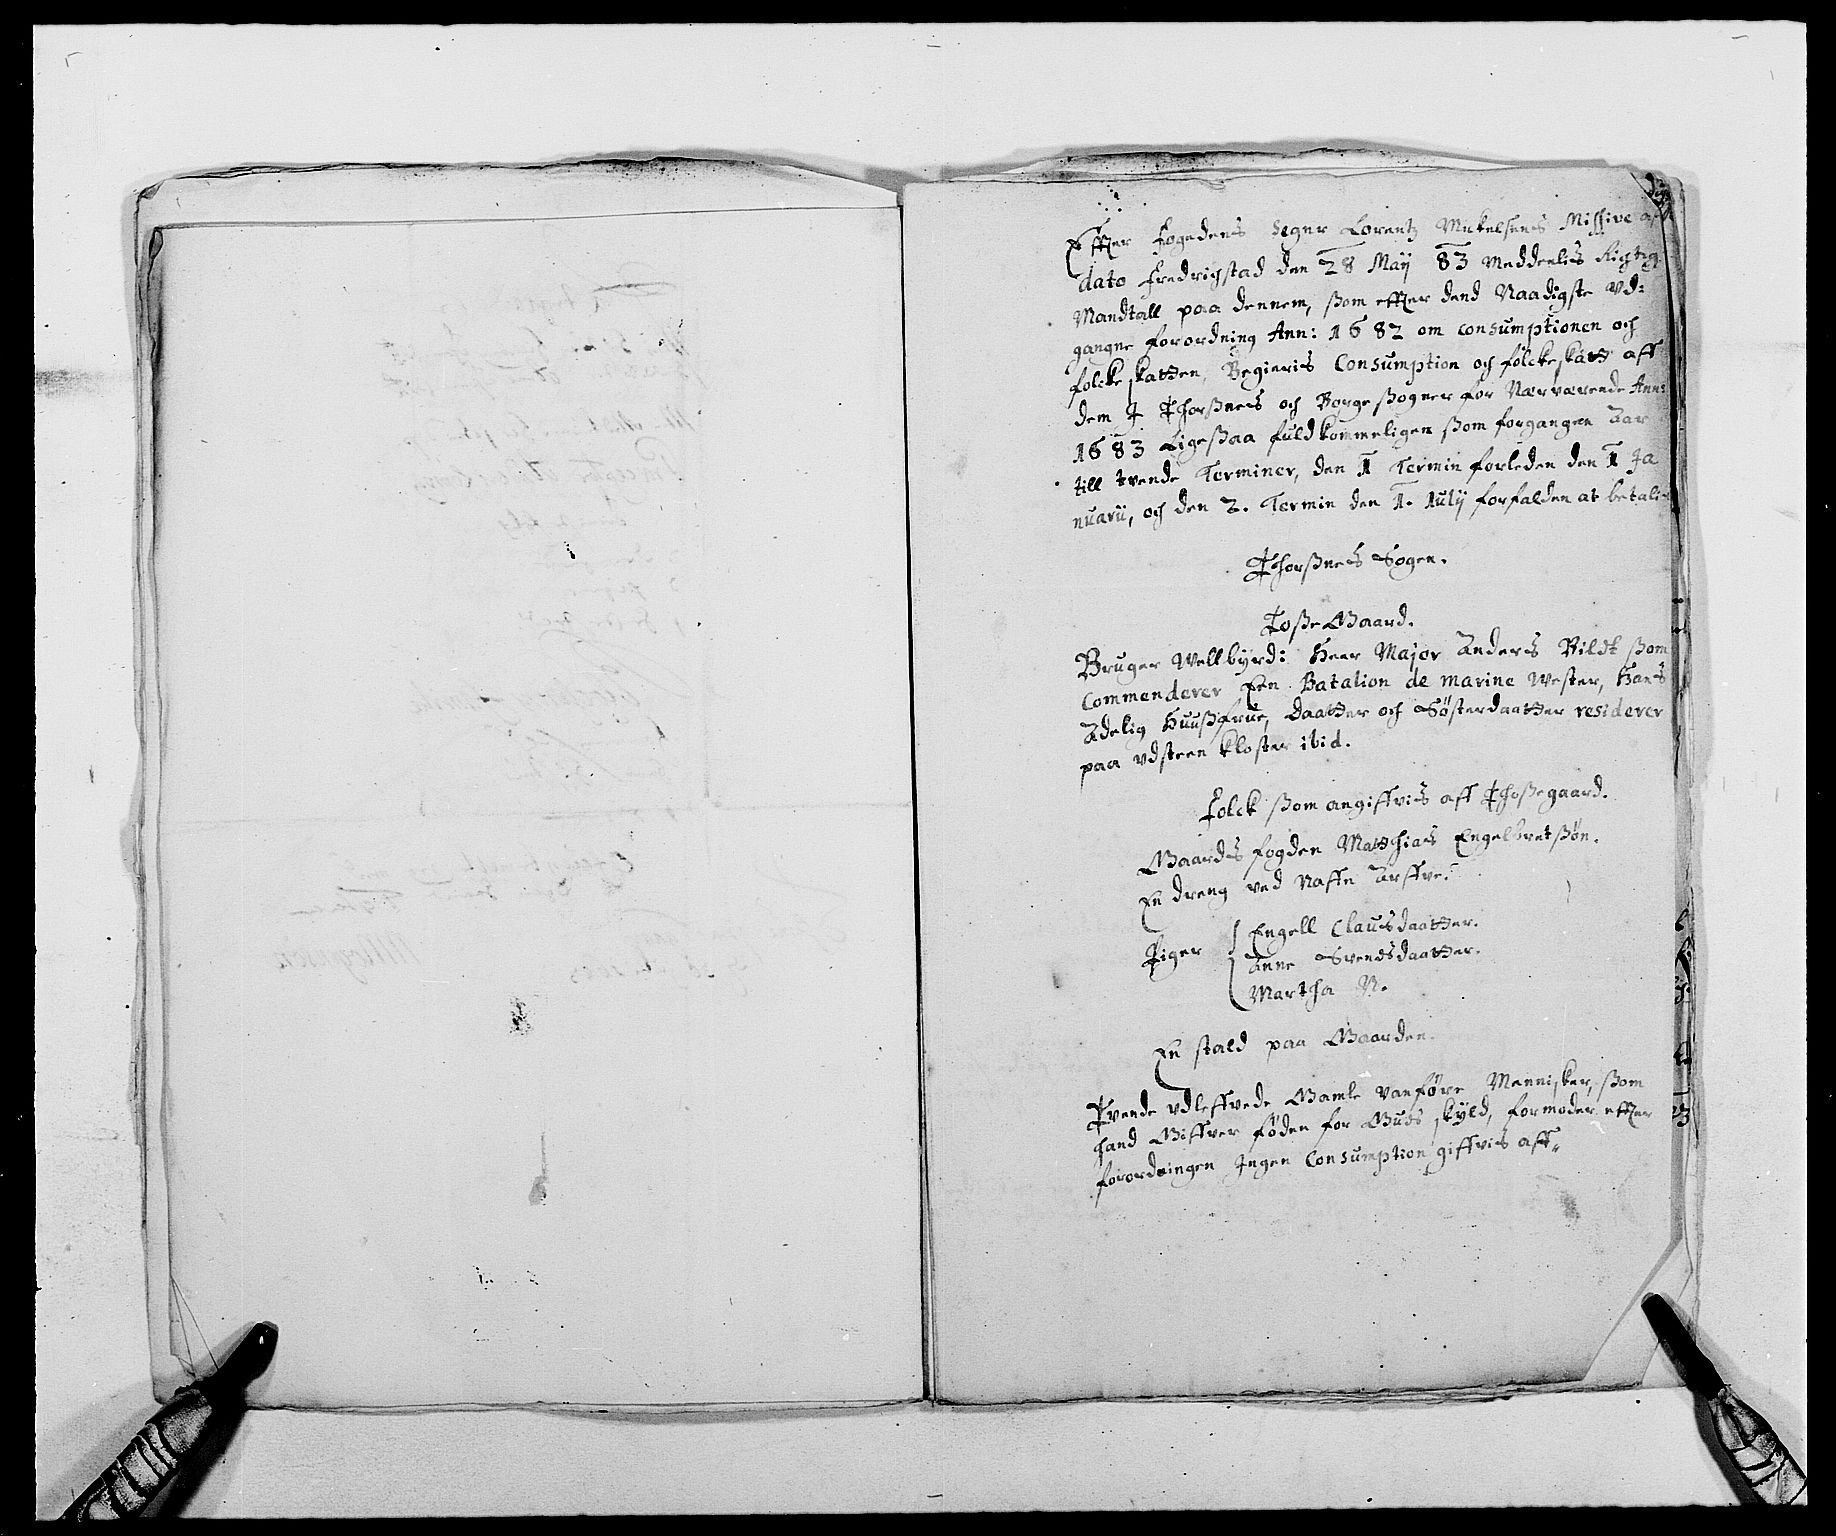 Effter fogedens Segnr Lorentz Mickelsens Missive aff
dato Fredrichstad den 28 Maij 83 meddeelis Rigtig
Mandtall paa dennem, ßom effter dend Naadigste vd:
gangne forordning Ann: 1682 om consumptionen och
folckeskatten, Begieris Consumption och folckeskatt aff
dem J Thorßnes och Borge ßogner for Nærværende Ann:
1683 Ligeßaa fuldkommeligen ßom forgangen Aar
till tvende Terminer, den 1 Termin forleden den 1 Ja
nuarij, och den 2. Termin den 1. Iulij forfalden at betale
Thorßnes Sogen.
Toße Gaard.
Bruger Wellbyrd: Herr Major Anders Bildt ßom
Commenderer Een Batalion de marine Wester, Hans
Adelig Huußfrue, Daatter och Søsterdaatter residerer
paa vdsteen kloster ibid.
Folck ßom angiffvis aff Thoßegaard.
Gaards fogden Matthias Engelbretßøn.
En dreng ved Naffn Arffve.
Piger
Engell Clausdaatter.
Anne Svendsdaatter.
Martha N.
En stald paa Gaarden.
Tvende vdleffvede Gamle vanføre Mennisker, ßom
hand Giffver føden for Guds skyld, formoder effter
forordningen Ingen Consumption giffvis aff.